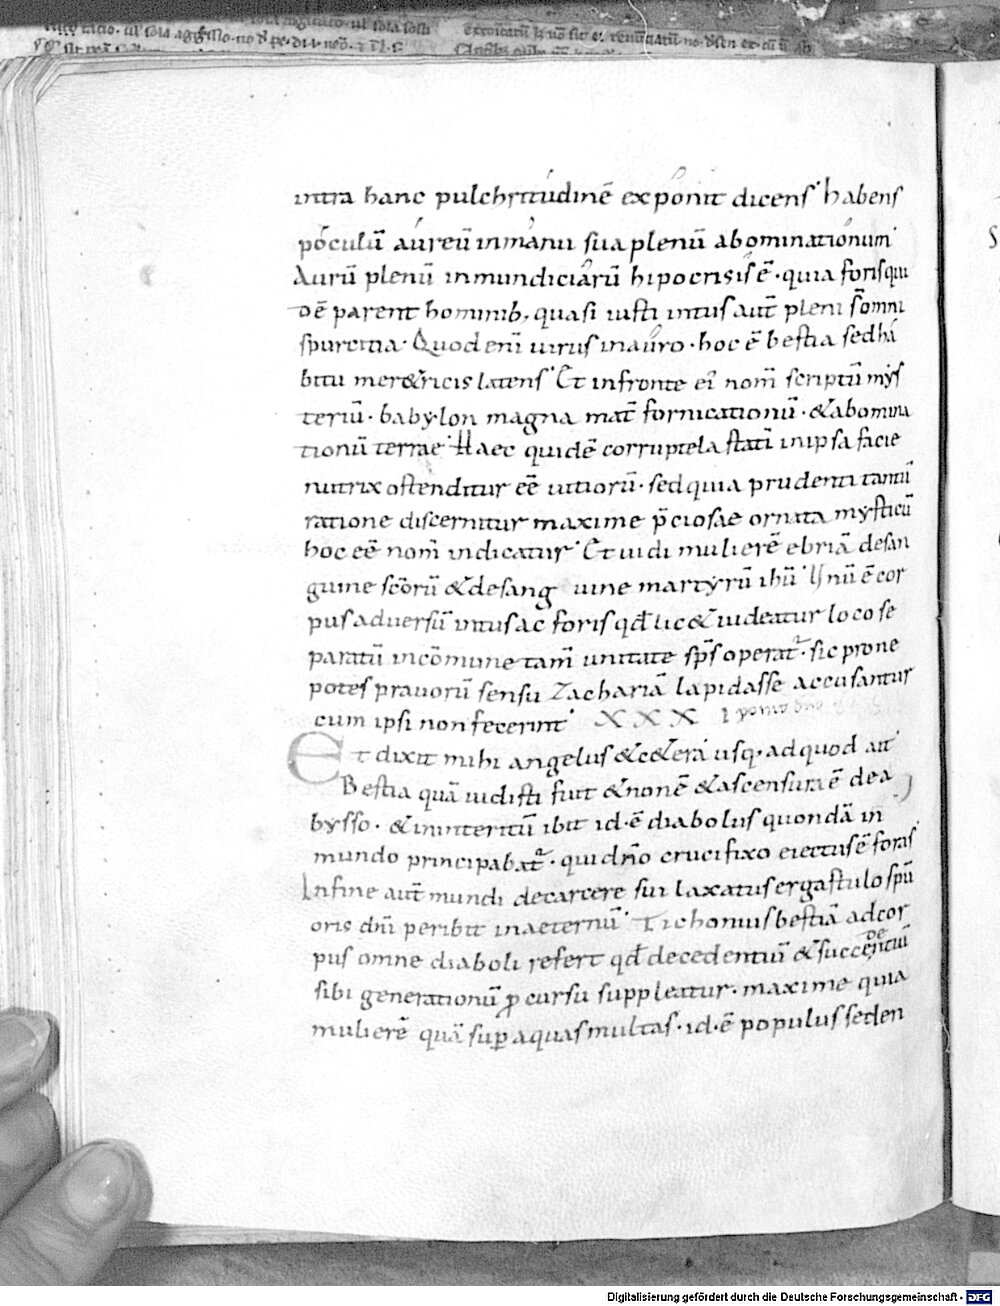 intra hanc pulchritudinē exponit dicens· habens
poculū aureū inmanu sua plenū abominationum·
Aurū plenū inmundiciarū hipocrisis ē· quia forisqui
dē parent hominib; quasi iusti intus aut̄ pleni s̄ omni
spurcitia· Quod enī uirus inauro· hoc ē bestia sedha
bitu mer&ricis latens· Et infronte ei nom̄ scriptū mys
teriū· babylon magna mat̄ fornicationū· &abomina
tionū terrae· Haec quidē corruptela statī inipsa facie
nutrix ostenditur eē uitiorū· sedquia prudenti tantū
ratione discernitur maxime p̄ciosae ornata mysticū
hoc eē nom̄ indicatur· Et uidi mulierē ebriā desan
guine scōrū &desang uine martyrū ihū· Unū ē cor
pus aduersū intus ac foris qđ lic& uideatur loco se
paratū incōmune tam̄ unitate sp̄s operat̄· sic prone
potes prauorū sensu Zachariā lapidasse accusantur
cum ipsi non fecerint· XXX
Et dixit mihi angelus &c&era usq; adquod ait·
Bestia quā uidisti fuit &nonē &ascensura ē dea
bysso· &ininteritū ibit id·ē diabolus quondā in
mundo principabat̄· qui dn̄o crucifixo eiectus ē foras
Infine aut̄ mundi decarcere sui laxatus ergastulo spū
oris dn̄i peribit inaeternū· Tichonius bestiā adcor
pus omne diaboli refert qđ decedentiū &succedentiū
sibi generationū p cursu suppleatur· maxime quia
mulierē quā sup aquas multas· id·ē populus seden
Digitalisierung gefördert durch die Deutsche Forschungsgemeinschaft - DFG